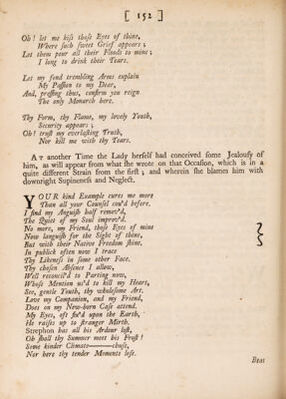 [ 152 ]
Oh! let me kiss those Eyes of thine,
Where such sweet Grief appears;
Let them pour all their Floods to mine;
I long to drink their Tears.
Let my fond trembling Arms explain
My Passion to my Dear,
And, pressing thus, confirm you reign
The only Monarch here.
Thy Form, thy Flame, my lovely Youth,
Security appears;
Oh! trust my everlasting Truth,
Nor kill me with thy Tears.
AT another Time the Lady herself had conceived some Jealousy of
him, as will appear from what she wrote on that Occasion, which is in a
quite different Strain from the first; and wherein she blames him with
downright Supineness and Neglect.
YOUR kind Example cures me more
Than all your Counsel cou'd before.
I find my Anguish half remov'd,
The Quiet of my Soul improv'd.
No more, my Friend, those Eyes of mine
Now languish for the Sight of thine,
But with their Native Freedom shine.
In publick often now I trace
Thy Likeness in some other Face.
Thy chosen Absence I allow,
Well reconcil'd to Parting now,
Whose Mention us'd to kill my Heart,
See, gentle Youth, thy wholesome Art.
Love my Companion, and my Friend,
Does on my New-born Case attend.
My Eyes, oft fix'd upon the Earth,
He raises up to stranger Mirth.
Strephon has all his Ardour lost,
Oh shall thy Summer meet his Frost!
Some kinder Climate——chuse,
Nor here thy tender Moments lose.